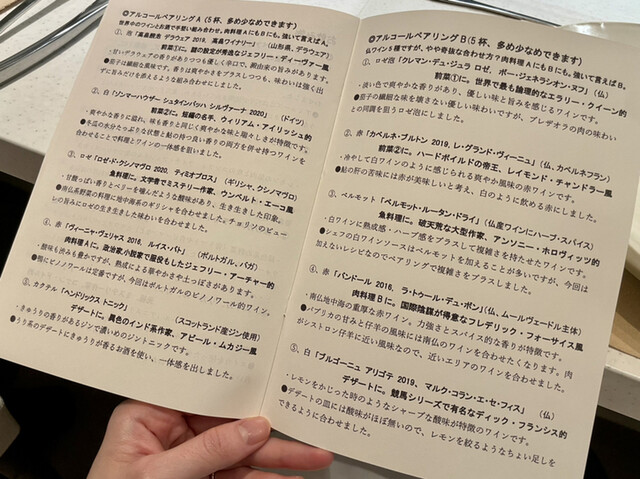 ◎アルコールペアリングA（5杯、多め少なめできます）
世界中のワインとお酒で手堅い組み合わせ。肉料理AにもBにも。強いて言えばA。
①、泡「高畠醗泡 デラウェア 2019, 高畠ワイナリー」（山形県、デラウェア）
前菜①に。謎の設定が秀逸なジェフリー・ディーヴァー風
・甘いデラウェアの香りがありつつも優しく辛口で、麹由来の旨みがあります。
●茄子の繊細な風味です。香りは爽やかさをプラスしつつも、味わいは強く出
ずに旨みだけを添えるような組み合わせにしました。
②、白「ゾンマーハウザー シュタインバッハ シルヴァーナ 2020」（ドイツ）
前菜②に。短編の名手、ウィリアム・アイリッシュ的
・爽やかな香りに溢れ、味も香りと同じく爽やかな味と瑞々しさが特徴です。
●冬瓜の水分たっぷりな状態と鮎の持つ良い香りの両方を併せ持つワインを
合わせることで料理とワインの一体感を狙いました。
③、ロゼ「ロゼ・ド・クシノマヴロ 2020, ティミオプロス」（ギリシャ、クシノマヴロ）
魚料理に。文学者でミステリー作家、ウンベルト・エーコ風
・甘酸っぱい香りとベリーを噛んだような酸味があり、生き生きした印象。
●南仏系野菜の料理に地中海系のギリシャを合わせました。チョリソのピュー
レの旨みにロゼの生き生きした味わいを合わせました。
④、赤「ヴィーニャ・ヴェリャス 2016, ルイス・パト」（ポルトガル、バガ）
肉料理Aに。政治家小説家で服役もしたジェフリー・アーチャー的
・酸味も渋みも豊かですが、熟成による華やかさや土っぽさがあります。
●鴨にピノノワールは定番ですが、今回はポルトガルのピノノワール的ワイン。
⑤、カクテル「ヘンドリックス トニック」（スコットランド産ジン使用）
デザートに。異色のインド系作家、アビール・ムカジー風
・きゅうりの香りがあるジンで濃いめのジントニックです。
●うり系のデザートにきゅうりが香るお酒を使い、一体感を出しました。
◎アルコールペアリングB（5杯、多め少なめできます）
仏ワイン5種ですが、やや奇抜な合わせ方？肉料理AにもBにも。強いて言えばB。
①、ロゼ泡「クレマン・デュ・ジュラ ロゼ, ボー・ジェネラシオン・ヌフ」（仏）
前菜①に。世界で最も論理的なエラリー・クイーン的
・淡い色で爽やかな香りがあり、優しい味と旨みを感じるワインです。
●茄子の繊細な味を壊さない優しい味わいですが、プレデオラの肉の味わい
との同調を狙うロゼ泡にしました。
②、赤「カベルネ・ブルトン 2019, レ・グランド・ヴィーニュ」（仏、カベルネフラン）
前菜②に。ハードボイルドの帝王、レイモンド・チャンドラー風
・冷やして白ワインのように感じられる爽やか風味の赤ワインです。
●鮎の肝の苦味には赤が美味しいと考え、白のように飲める赤にしました。
③、ベルモット「ベルモット・ルータン・ドライ」（仏産ワインにハーブ・スパイス）
魚料理に。破天荒な大型作家、アンソニー・ホロヴィッツ的
・白ワインに熟成感・ハーブ感をプラスして複雑さを持たせたワインです。
●シェフの白ワインソースはベルモットを加えることが多いですが、今回は
加えないレシピなのでペアリングで複雑さをプラスしました。
④、赤「バンドール 2016, ラ・トゥール・デュ・ボン」（仏、ムールヴェードル主体）
肉料理Bに。国際陰謀が得意なフレデリック・フォーサイス風
・南仏地中海の重厚な赤ワイン。力強さとスパイス的な香りが特徴です。
●パプリカの甘みと仔羊の風味には南仏のワインを合わせたくなります。肉
がシストロン仔羊に近い風味なので、近いエリアのワインを合わせました。
⑤、白「ブルゴーニュ アリゴテ 2019, マルク・コラン・エ・セ・フィス」（仏）
デザートに。競馬シリーズで有名なディック・フランシス的
・レモンをかじった時のようなシャープな酸味が特徴のワインです。
●デザートの皿には酸味がほぼ無いので、レモンを絞るようなちょい足しを
できるように合わせました。